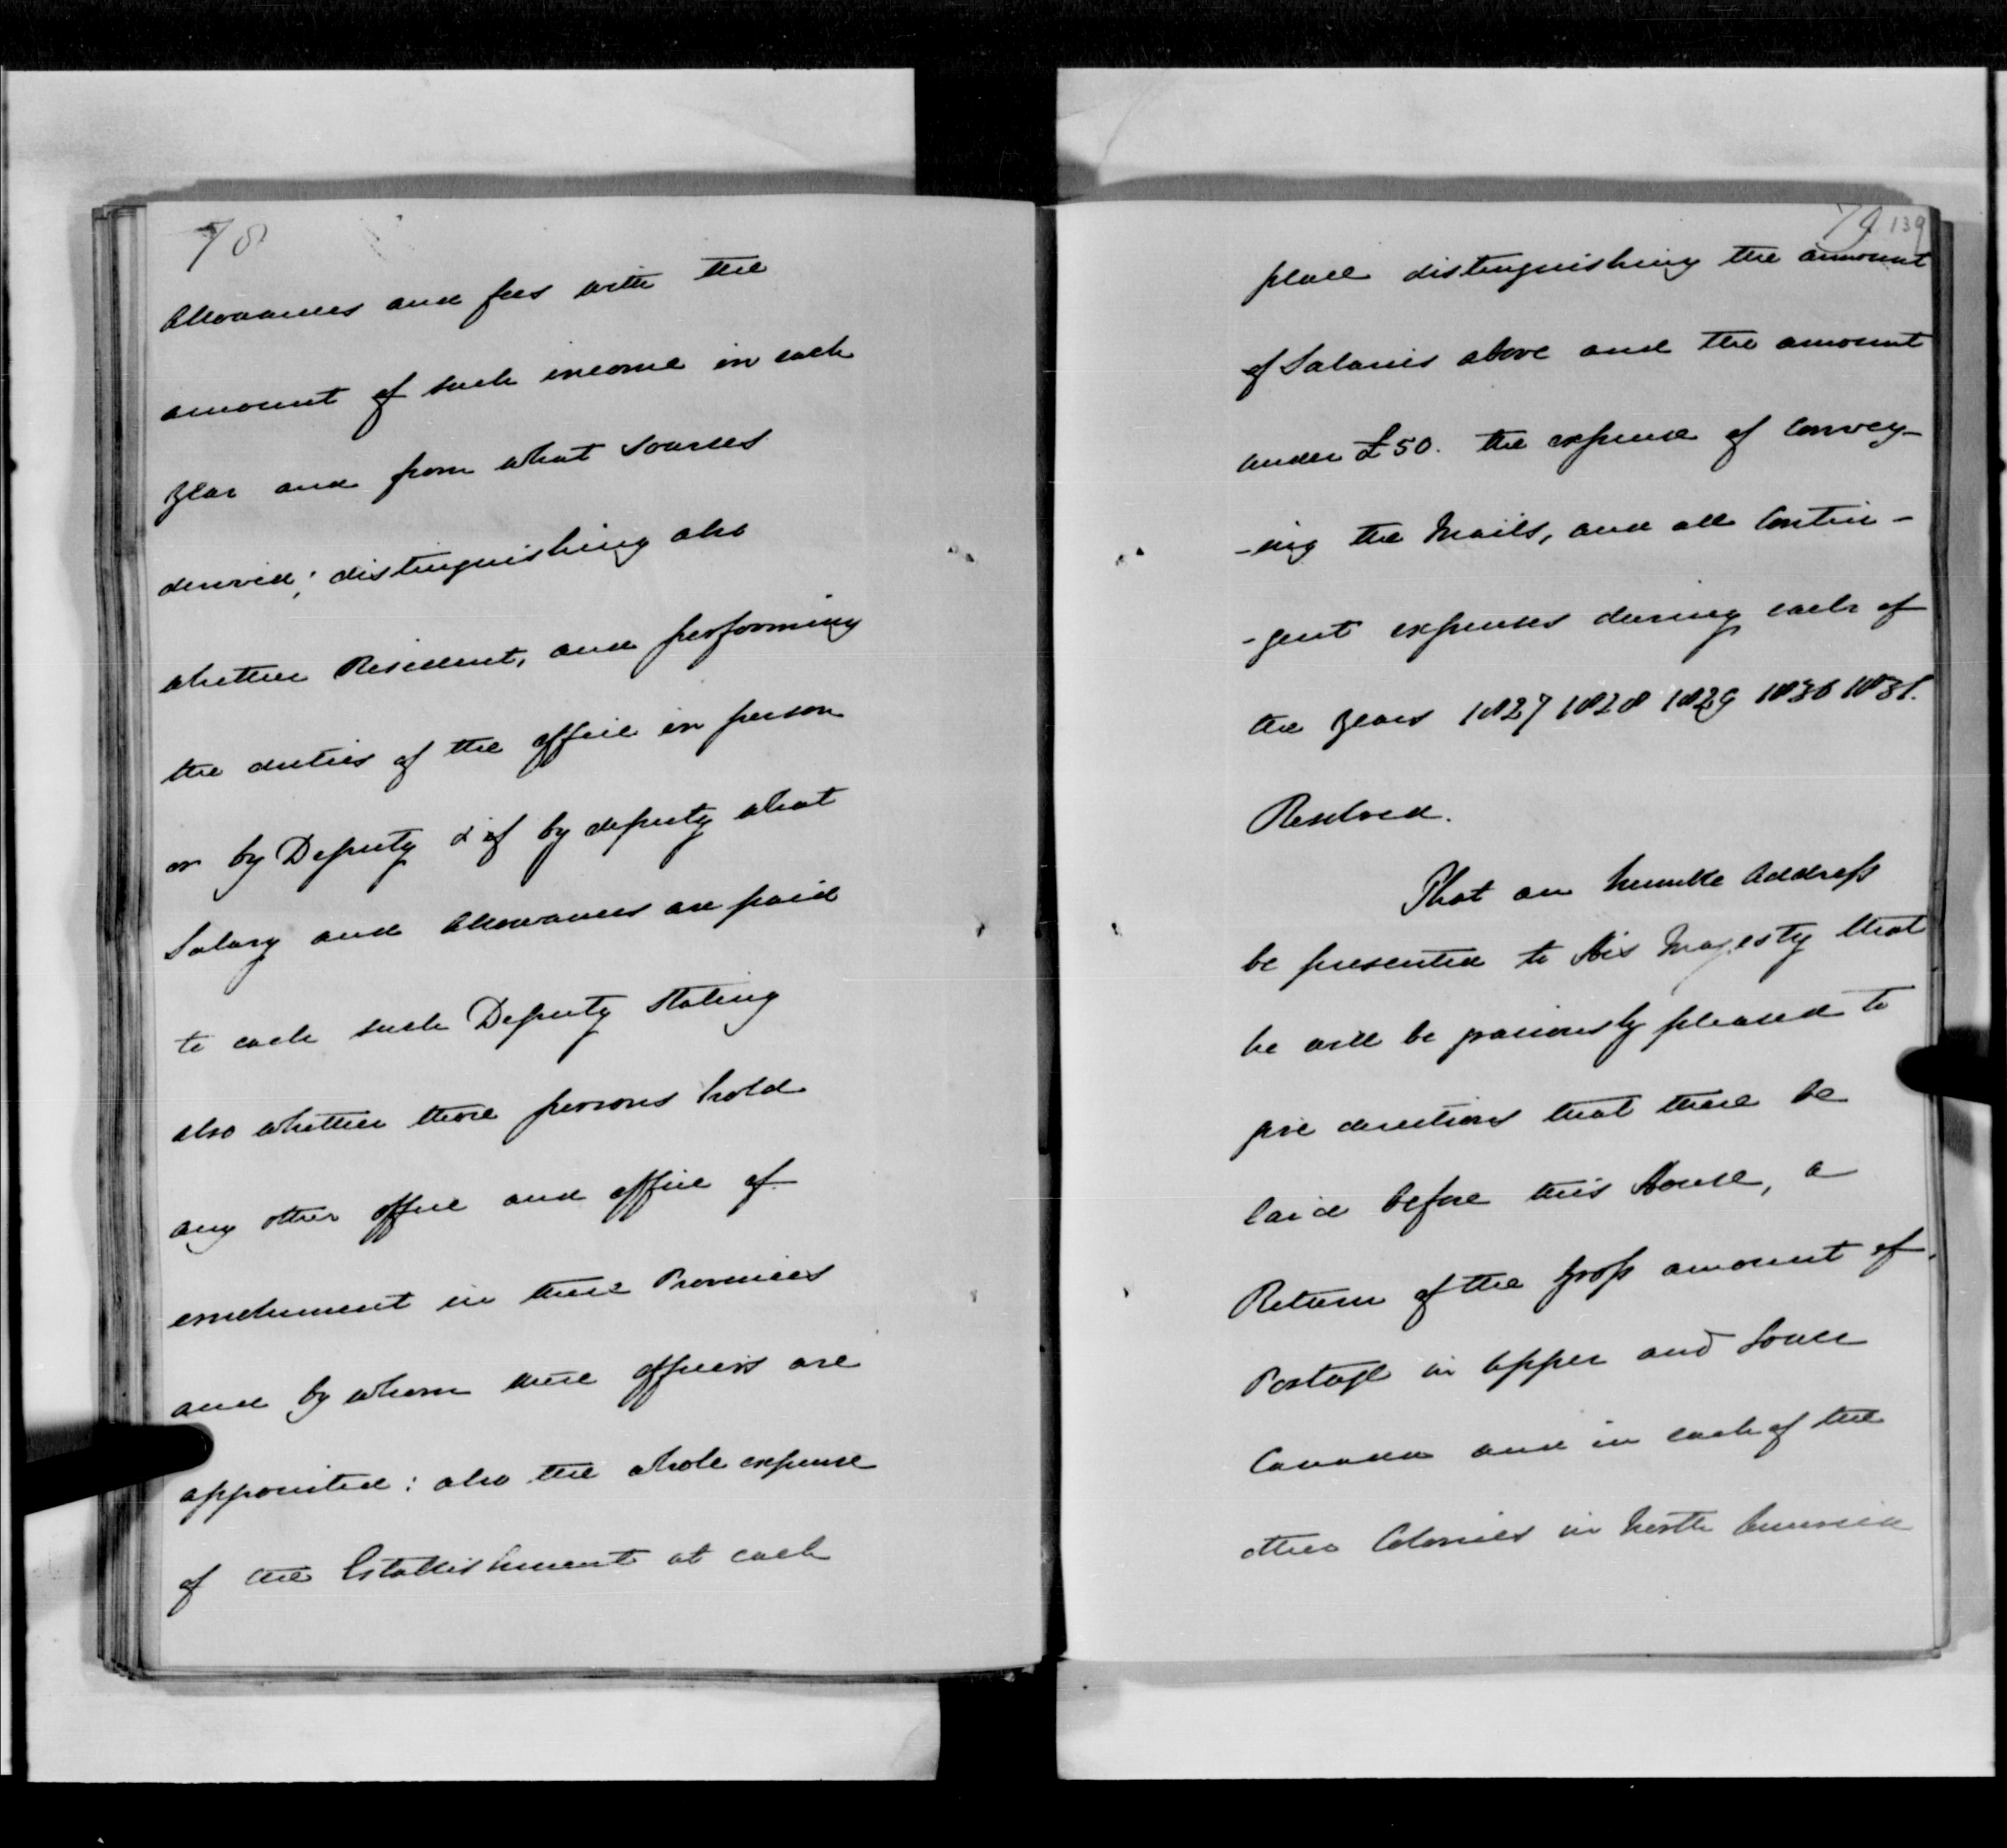 78
Allowances and fees with the
amount of such income in each
year and from what sources
derived; distinguishing also
whether Resident, and performing
the duties of the office in person
or by Deputy & if by deputy what
Salary and Allowances are paid
to each such Deputy stating
also whether these persons hold
any other office and office of
emolument in these Provinces
and by whom these officers are
appointed: also the whole expense
of the Establishment at each
79 139
place distinguishing the amount
of Salaries above and the amount
under £50. the expense of Convey-
-ing the Mails, and all Contin-
-gent expenses during each of
the years 1827 1828 1829 1830 1831.
Resolved.
That an humble Address
be presented to His Majesty that
he will be graciously pleased to
give directions that there be
laid before this House, a
Return of the gross amount of
Postage in Upper and Lower
Canada and in each of the
other Colonies in North America